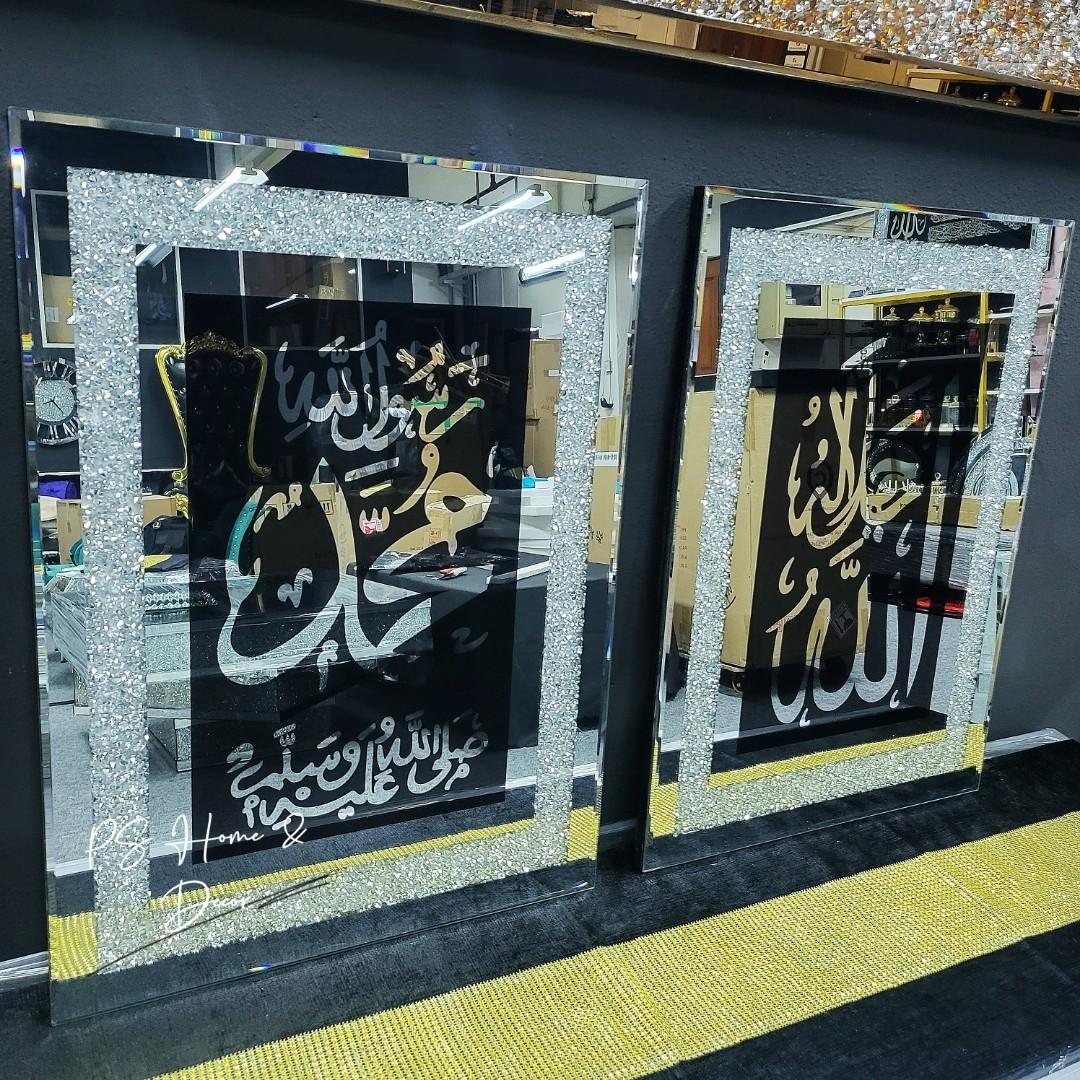 رسول الله
محمد
صلى الله عليه وسلم
الله
جل جلاله
PS Home &
Decor